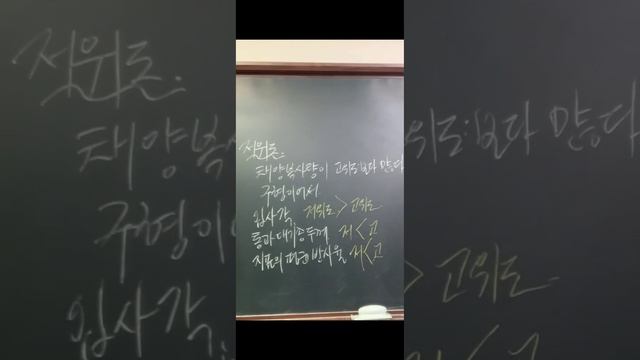 저위도.
태양복사량이 고위도보다 많다
구형이어서
입사각 저위도 > 고위도
통과 대기층 두께 저 < 고
지표의 평균 반사율 저 < 고